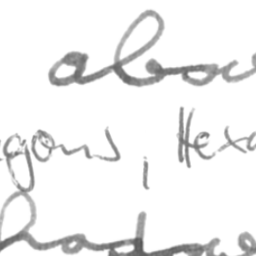 abou
gons, Hexa
hadow